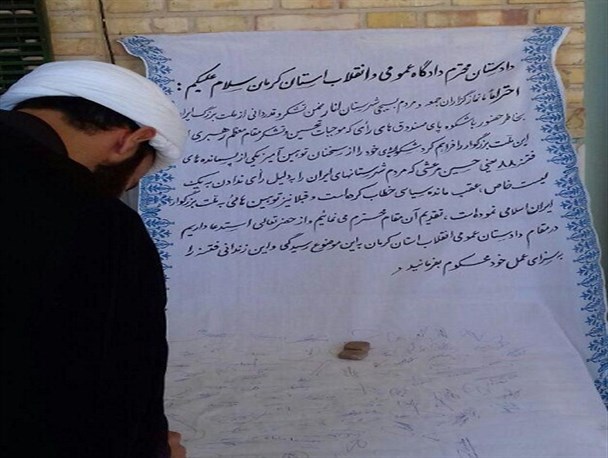 دادستان محترم دادگاه عمومی و انقلاب استان کرمان سلام علیکم :
احتراماً، نمازگزاران جمعه و مردم بسیجی شهرستان انار ضمن تشکر و قدردانی از ملت بزرگ ایران
بخاطر حضور با شکوه پای صندوق های رأی که موجبات تحسین و تشکر مقام معظم رهبری از
این ملت بزرگوار را فراهم کرد شکوائیه‌ی خود را از سخنان توهین آمیز یکی از پسمانده های
فتنه ۸۸ یعنی حسین مرعشی که مردم شهرستانهای ایران را بدلیل رأی ندادن به یک
لیست خاص، عقب مانده سیاسی خطاب کرده است و قبلا نیز توهین هائی به ملت بزرگوار
ایران اسلامی نموده است، تقدیم آن مقام محترم می نمائیم و از حضرتعالی استدعا داریم
در مقام دادستان عمومی انقلاب استان کرمان به این موضوع رسیدگی و این زندانی فتنه را
به سزای عمل خود محکوم بفرمائید